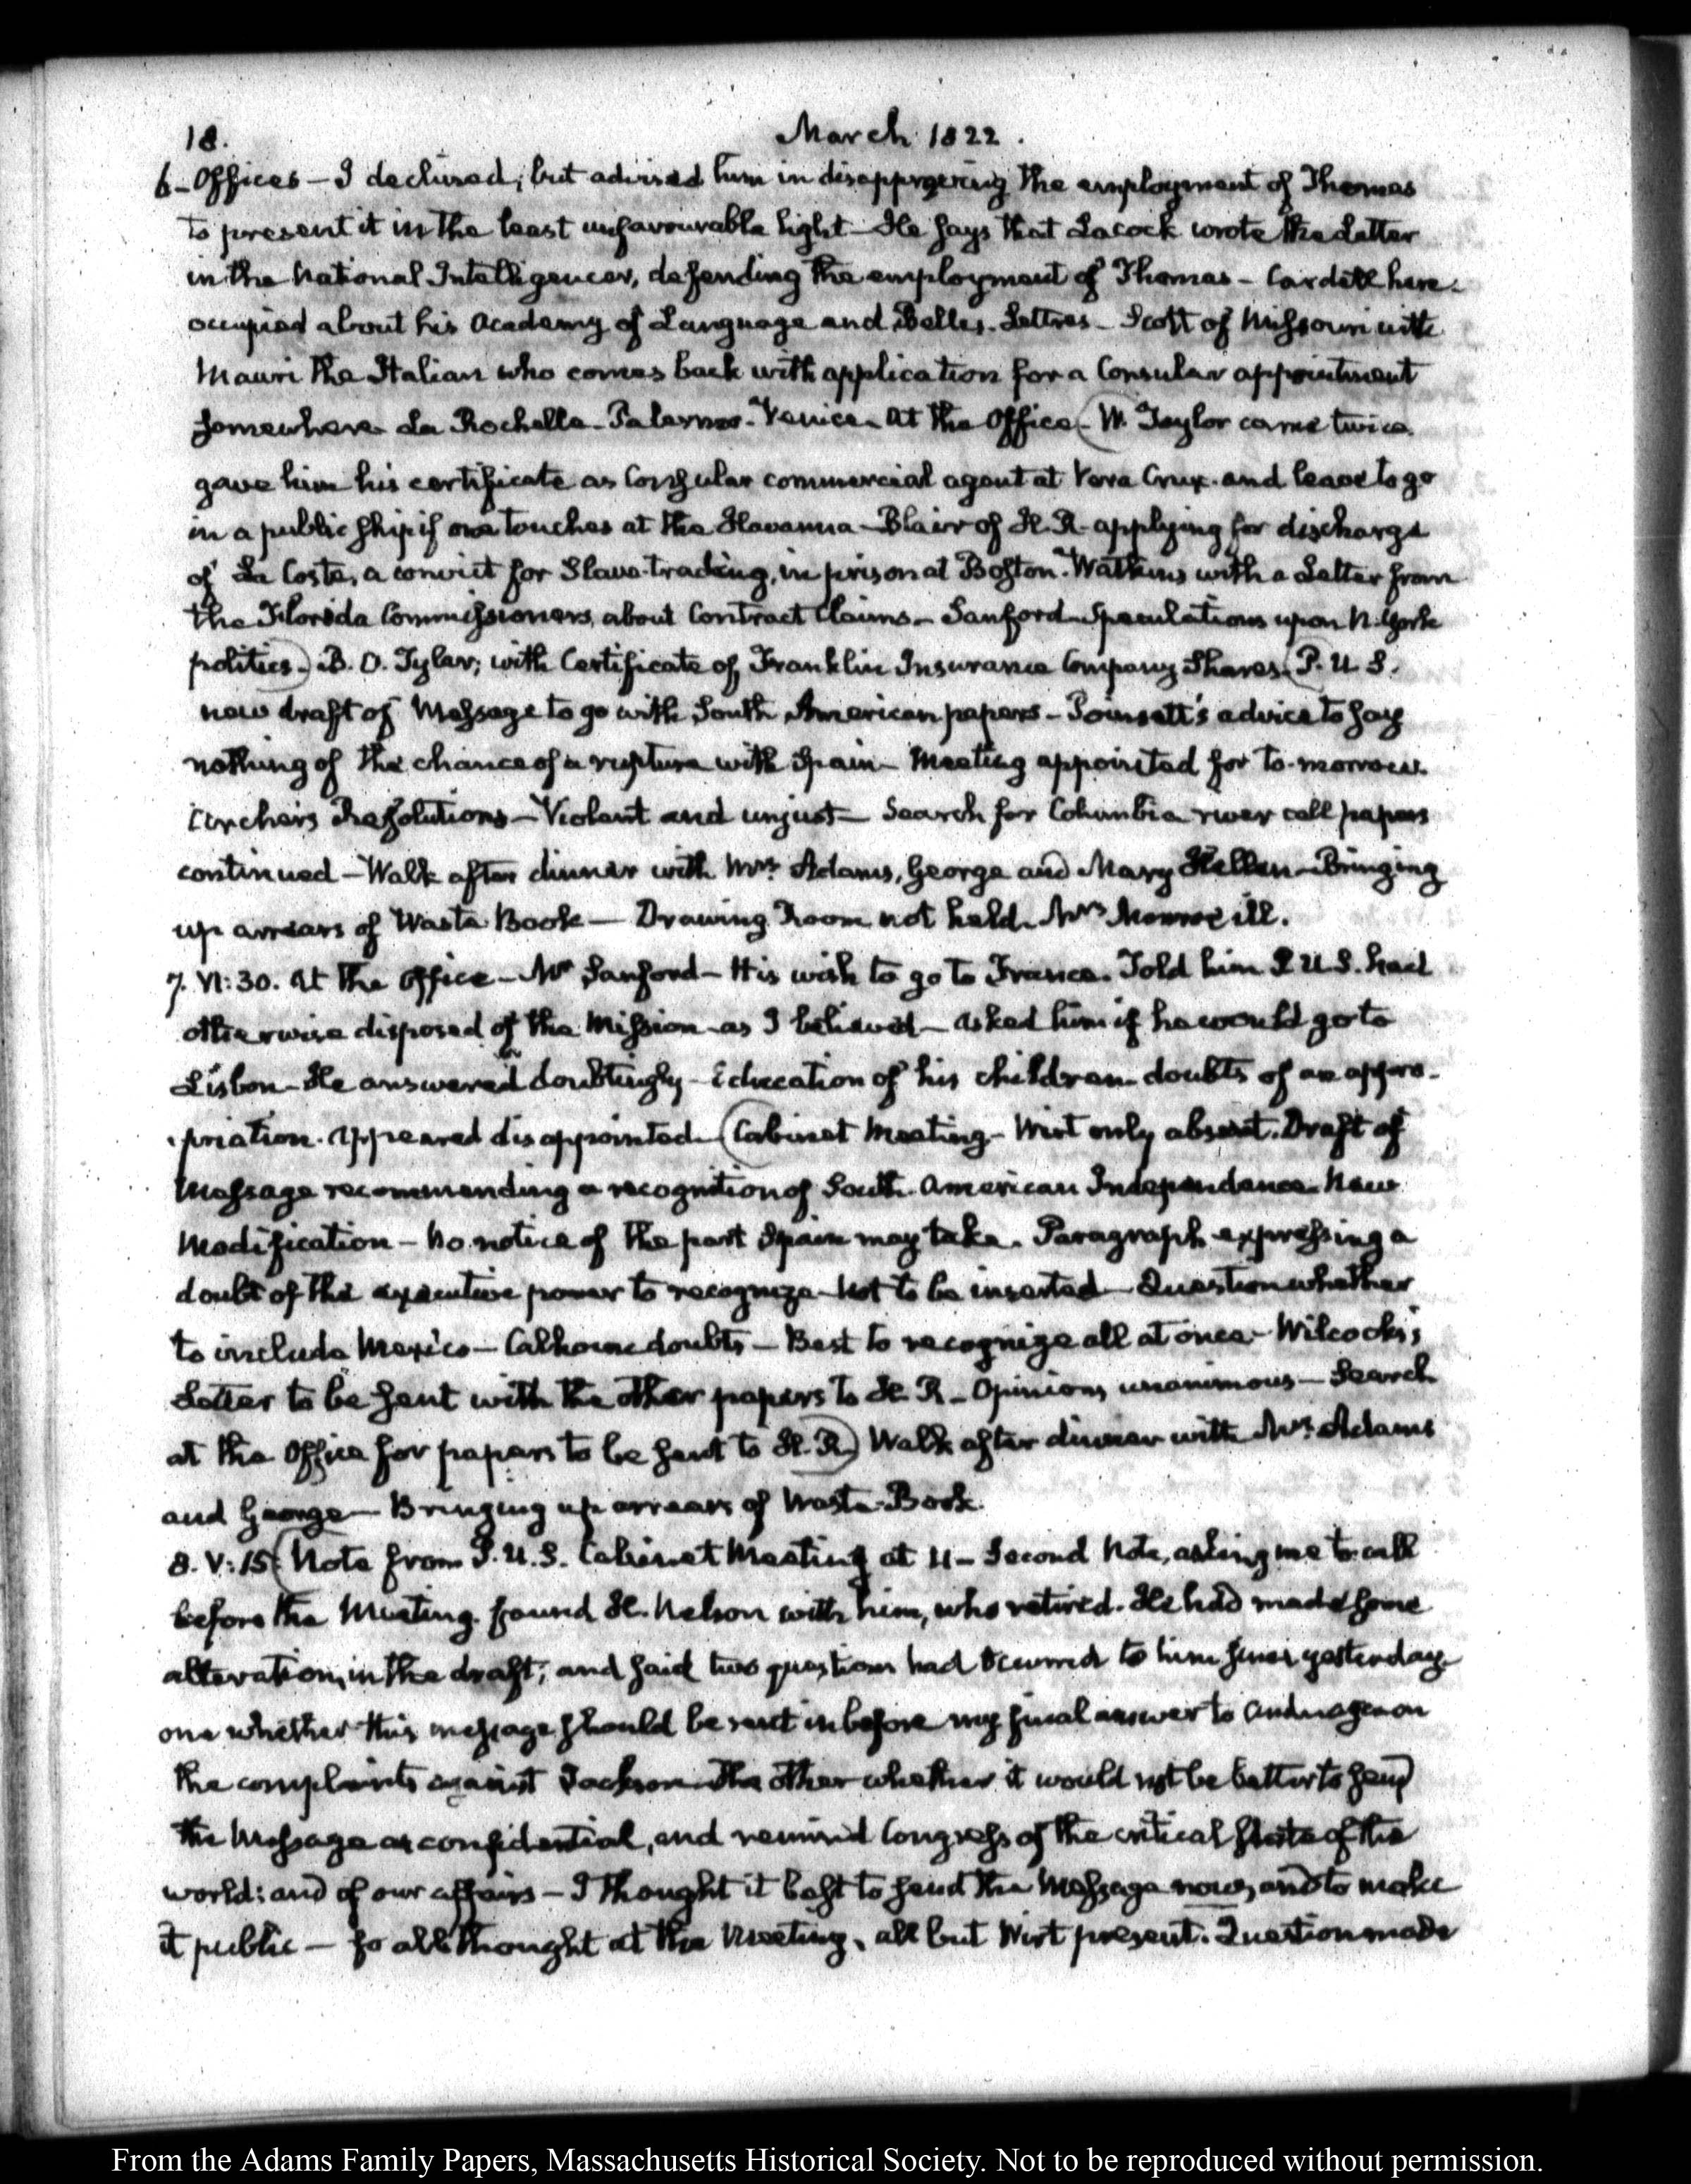 18. March 1822.
6 - Offices - I declined; but advised him in disapproving the employment of Thomas
to present it in the least unfavourable light - He says that Lacock wrote the Letter
in the National Intelligencer, defending the employment of Thomas - Cardell here -
occupied about his Academy of Language and Belles-Lettres - Scott of Missouri with
Mauri the Italian who comes back with application for a Consular appointment
somewhere La Rochelle - Palermo - Venice - At the Office (W. Taylor came twice
gave him his certificate as Consular commercial agent at Vera Cruz. and leave to go
in a public ship if one touches at the Havanna - Blair of H.R. applying for discharge
of La Coste, a convict for Slave-trading, in prison at Boston. Watkins with a Letter from
the Florida Commissioners, about Contract Claims - Sanford - Speculations upon N. York
politics.) B. O. Tyler; with Certificate of Franklin Insurance Company Shares (P. U. S.
new draft of Message to go with South American papers - Poinsett's advice to say
nothing of the chance of a rupture with Spain - Meeting appointed for to-morrow.
Archer's Resolutions - Violent and unjust - Search for Columbia river call papers
continued - Walk after dinner with Mrs. Adams, George and Mary Hellen - Bringing
up arrears of Waste Book - Drawing Room not held. Mrs Monroe ill.
7. VI:30. At the Office - Mr Sanford - His wish to go to France. Told him P. U. S. had
otherwise disposed of the Mission as I believed - Asked him if he would go to
Lisbon - He answered doubtingly - Education of his children - doubts of an appro-
priation. Appeared disappointed. (Cabinet Meeting - Wirt only absent. Draft of
Message recommending a recognition of South-American Independence. New
Modification - No notice of the part Spain may take. Paragraph expressing a
doubt of the executive power to recognize - Not to be inserted - Question whether
to include Mexico - Calhoun doubts - Best to recognize all at once - Wilcocks's
Letter to be sent with the other papers to H. R - Opinions unanimous - Search
at the Office for papers to be sent to H. R.) Walk after dinner with Mrs. Adams
and George - Bringing up arrears of Waste-Book.
8. V:15. (Note from P. U. S. Cabinet Meeting at 11 - Second Note, asking me to call
before the Meeting. found H. Nelson with him, who retired. He had made some
alterations, in the draft; and said two questions had occurred to him since yesterday
one whether this message should be sent in before my final answer to Anduaga on
the complaints against Jackson. The other whether it would not be better to send
the Message as confidential, and remind Congress of the critical state of the
world: and of our affairs - I thought it best to send the Message now, and to make
it public - so all thought at the Meeting, all but Wirt present. Question made
From the Adams Family Papers, Massachusetts Historical Society. Not to be reproduced without permission.